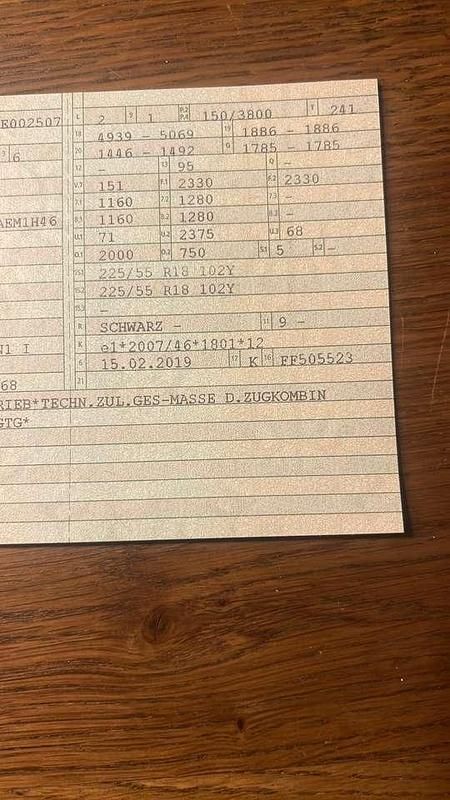 E002507 L 2 9 1 P.2 P.4 150/3800 T 241
18 4939 - 5069 19 1886 - 1886
6 20 1446 - 1492 G 1785 - 1785
12 - 13 95 Q -
V.7 151 F.1 2330 F.2 2330
7.1 1160 7.2 1280 7.3 -
AEM1H46 8.1 1160 8.2 1280 8.3 -
U.1 71 U.2 2375 U.3 68
O.1 2000 O.2 750 S.1 5 S.2 -
15.1 225/55 R18 102Y
15.2 225/55 R18 102Y
15.3 -
R SCHWARZ - 11 9 -
N1 I K e1*2007/46*1801*12
6 15.02.2019 17 K 16 FF505523
68 21
RIEB*TECHN.ZUL.GES-MASSE D.ZUGKOMBIN
GTG*